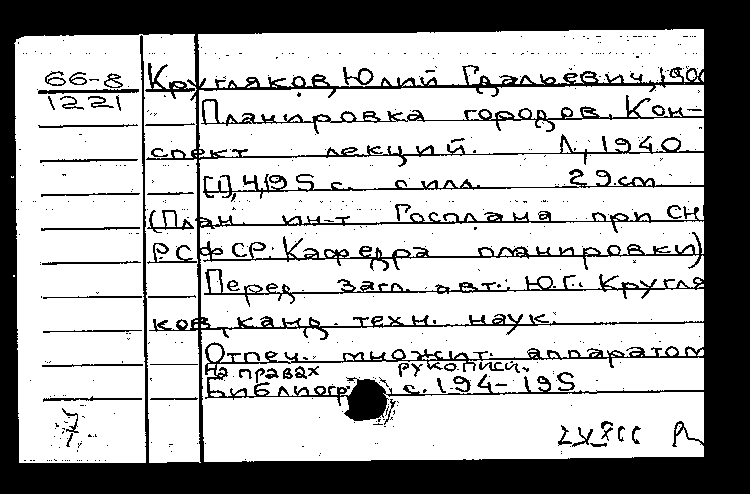 66-8
1221
Кругляков, Юлий Гдальевич, 190
Планировка городов. Кон-
спект лекций. Л., 1940.
[1], 4, 195 с. с илл. 29 cm
(План. ин-т Госплана при СН
РСФСР. Кафедра планировки)
Перед загл. авт.: Ю.Г. Кругля
ков, канд. техн. наук.
Отпеч. множит. аппаратом
На правах рукописи.
Библиогр с. 194-195
7